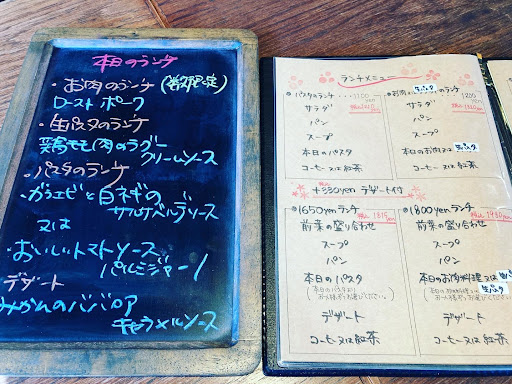 本日のランチ
・お肉のランチ(数限定)
ローストポーク
・生パスタのランチ
鶏もも肉のラグー
クリームソース
・パスタのランチ
・ガラエビと白ネギの
サルサベルデソース
又は
・おいしいトマトソース
パルミジャーノ
デザート
みかんのババロア
キャラメルソース
ランチメニュー
パスタのランチ・・・1100 yen
サラダ
パン
スープ
本日のパスタ
コーヒー又は紅茶
お肉 生パスタのランチ 1200 yen
サラダ
パン
スープ
本日のお肉又は生パスタ
コーヒー又は紅茶
税込
+330yen デザート付
1650yenランチ
税込1815yen
前菜の盛り合わせ
スープ
パン
本日のパスタ
デザート
コーヒー又は紅茶
1800yenランチ
前菜の盛り合わせ
スープ
パン
本日のお肉料理又は生パスタ
デザート
コーヒー又は紅茶